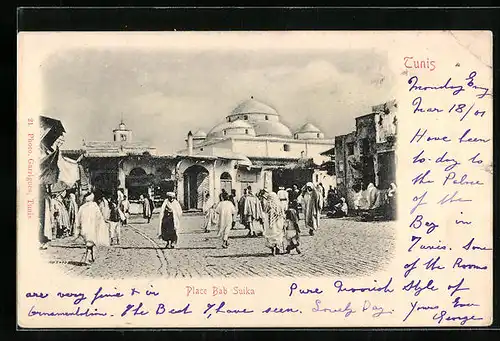 Tunis
Monday Eng
Mar 18/01
Have been
to-day to
the Palce
of the
Bey in
Tunis. Some
of the Rooms
are very fine & in Pure Moorish Style of
Ornamentation. The Best I have seen. Lovely Day. Yours Ever
George
Place Bab Suika
21 Photo. Garrigues, Tunis